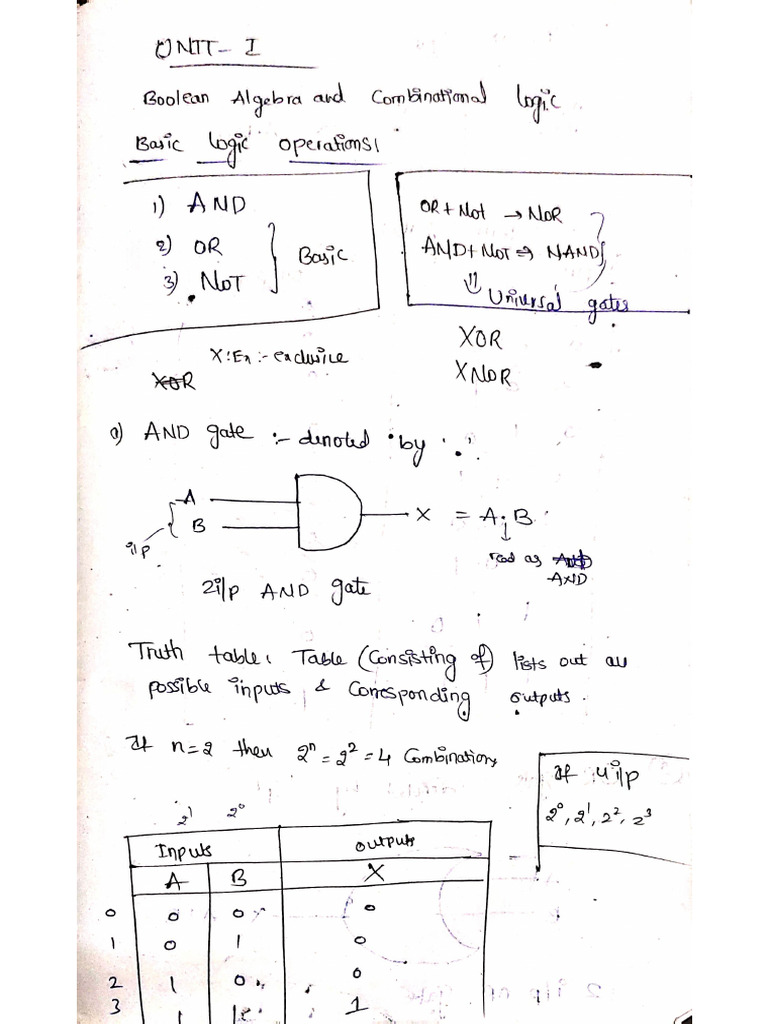 UNIT - I
Boolean Algebra and Combinational logic
Basic logic operations:
1) AND
2) OR
3) NOT
Basic
OR + Not → NOR
AND + NOT ⇒ NAND
⇓
Universal gates
XOR
X: Ex :- exclusive
XOR
XNOR
a) AND gate :- denoted by '.'
A
B
i/p
X = A.B
↓
read as AND
AND
2i/p AND gate
Truth table: Table (Consisting of) lists out all
possible inputs & Corresponding outputs.
If n=2 then 2ⁿ = 2² = 4 Combinations
If 4 i/p
2⁰, 2¹, 2², 2³
2¹ 2⁰
Inputs outputs
A B X
0 0 0 0
1 0 1 0
2 1 0 0
3 1 1 1